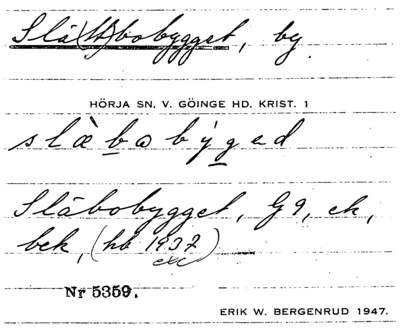 Slä(tt)bobygget, by.
HÖRJA SN, V. GÖINGE HD, KRIST. 1
slàbobýged
Släbobygget, G9, ek,
bek, (hb 1937)
exc
Nr 5359.
ERIK W. BERGENRUD 1947.